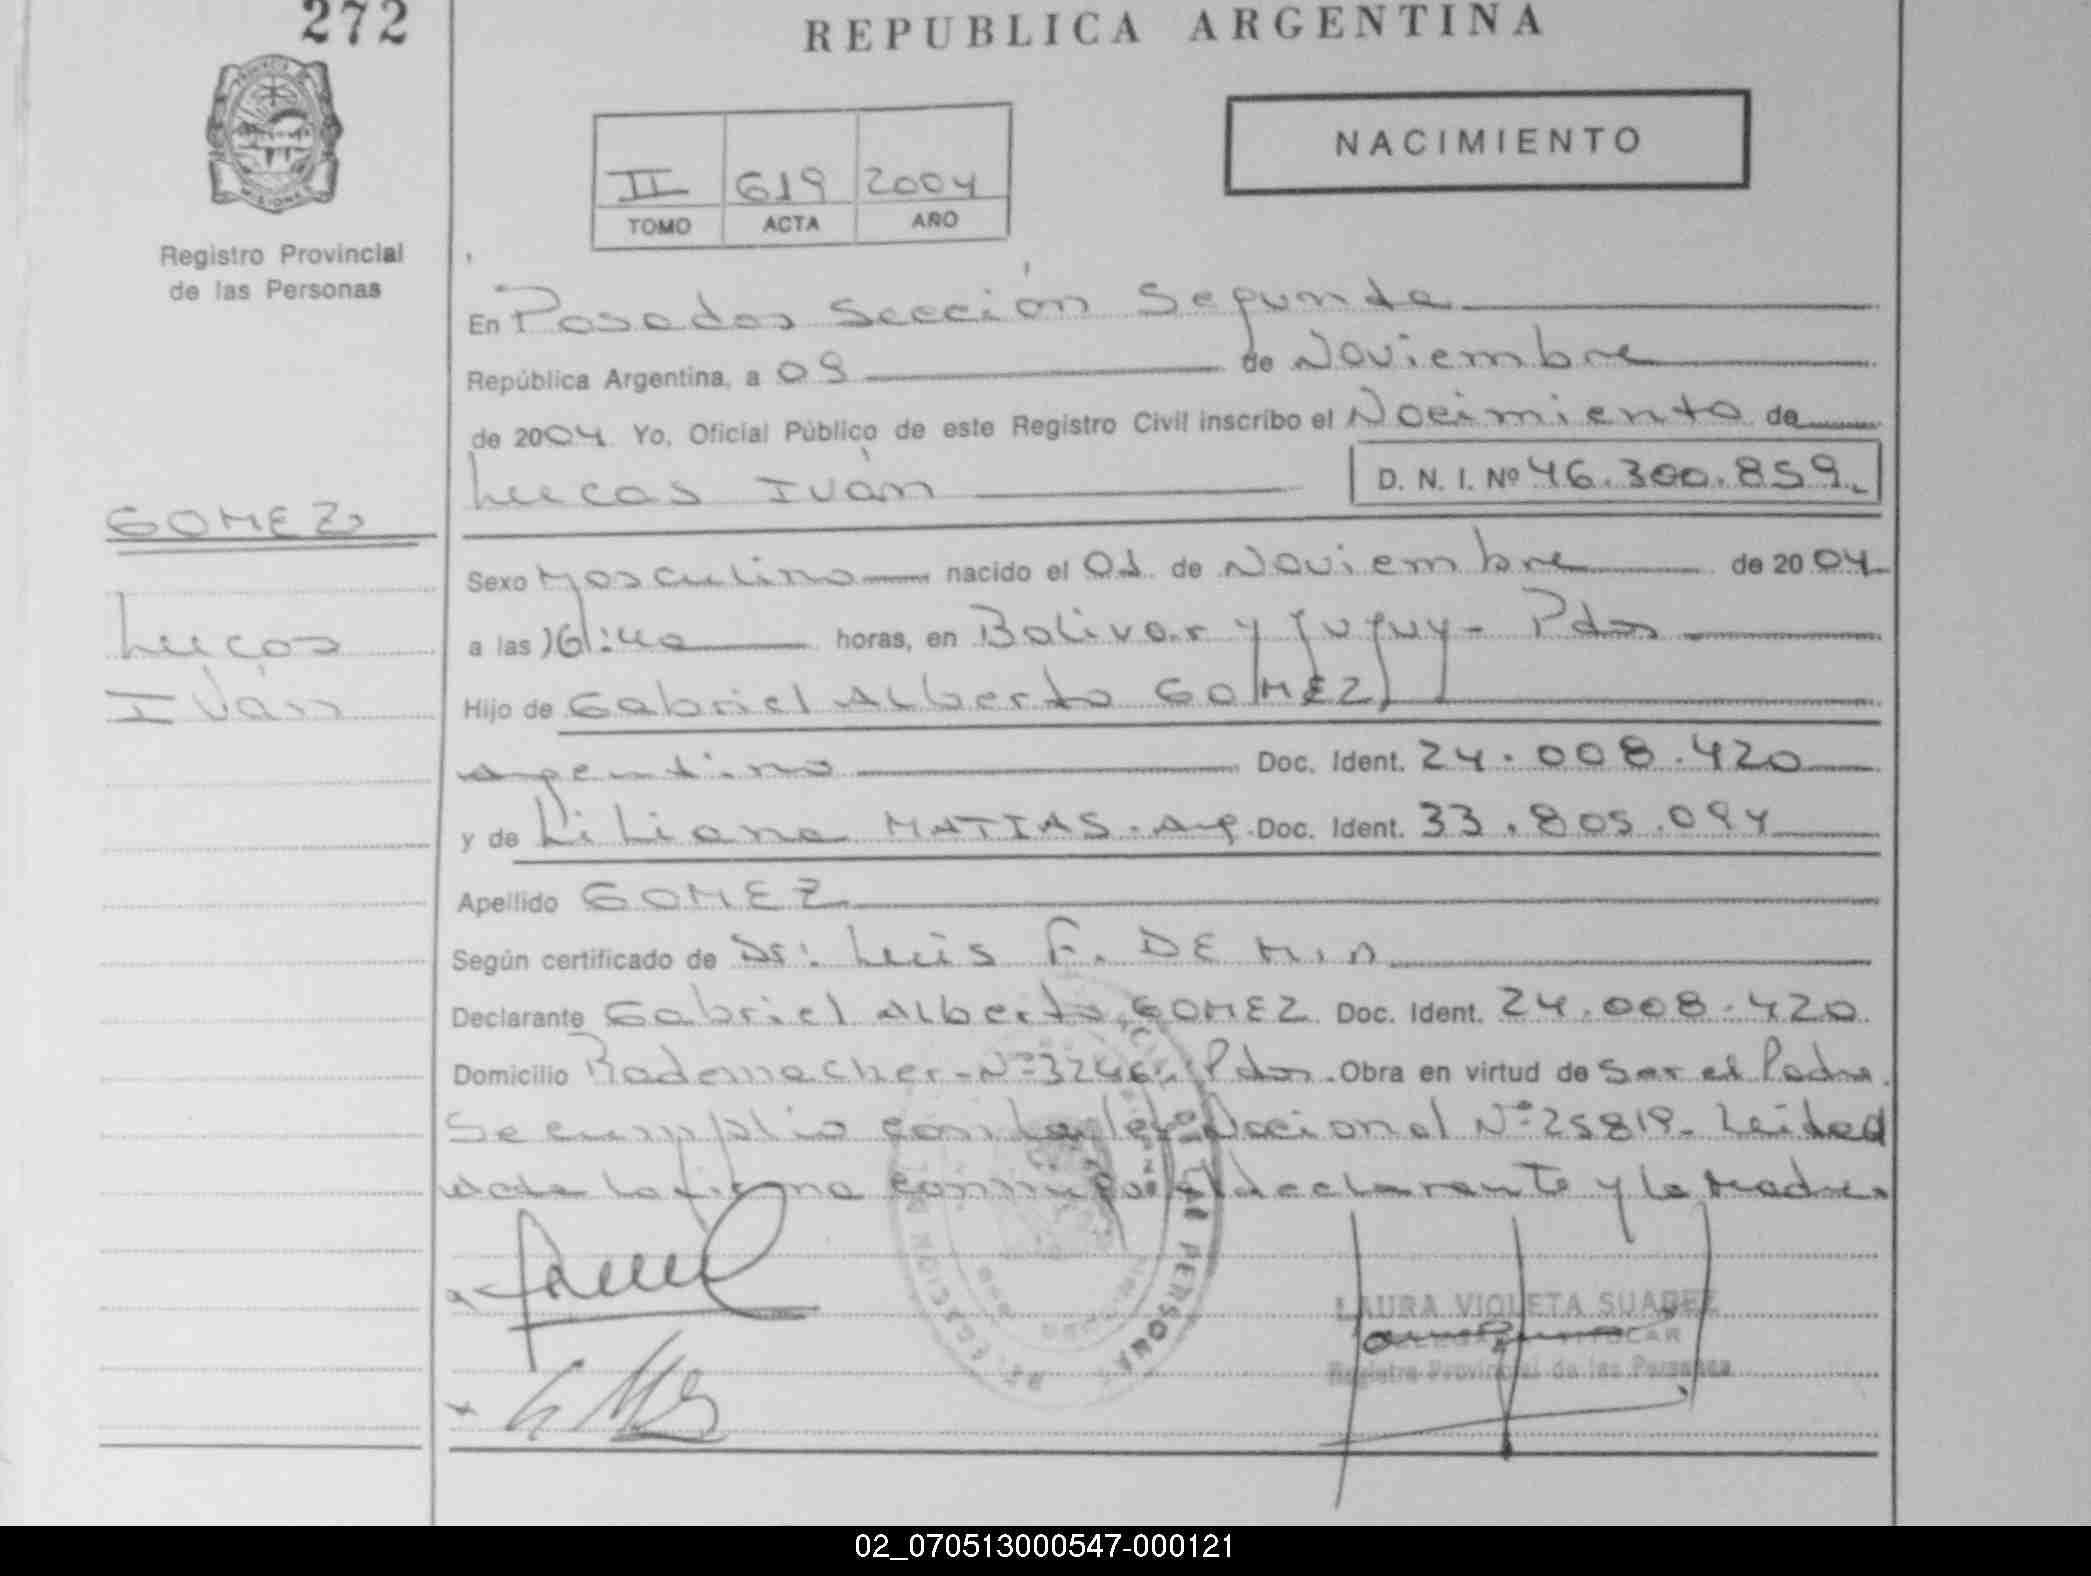 272
REPUBLICA ARGENTINA
NACIMIENTO
II 619 2004
TOMO ACTA AÑO
Registro Provincial
de las Personas
En Posadas Sección Segunda
República Argentina, a 09 de Noviembre
de 2004 Yo, Oficial Público de este Registro Civil inscribo el Nacimiento de
Lucas Iván D. N. I. Nº 46.300.859
GOMEZ
Sexo Masculino nacido el 01 de Noviembre de 2004
Lucas
a las 16:40 horas, en Bolivar y Jujuy - Pdas
Iván
Hijo de Gabriel Alberto GOMEZ
argentino Doc. Ident. 24.008.420
y de Liliana MATIAS. Arg. Doc. Ident. 33.805.094
Apellido GOMEZ
Según certificado de Dr: Luis F. DE MIN
Declarante Gabriel Alberto GOMEZ Doc. Ident. 24.008.420
Domicilio Rademacher - Nº 3246, Pdas. Obra en virtud de Ser el Padre.
Se cumplio con la ley Nacional Nº 25819. Leida el
acta la firma conmigo el declarante y la Madre
LAURA VIOLETA SUAREZ
Registro Provincial de las Personas
02_070513000547-000121